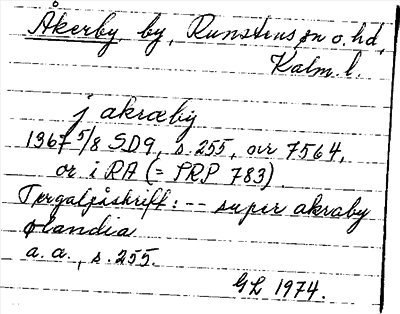 Åkerby by, Runstens sn o. hd,
Kalm. l.
j akræby
1367 5/8 SD9, s. 255, nr 7564,
or i RA (= PRP 783)
Tergalpåskrift: -- super akraby
ølandia
a. a., s. 255.
GL 1974.